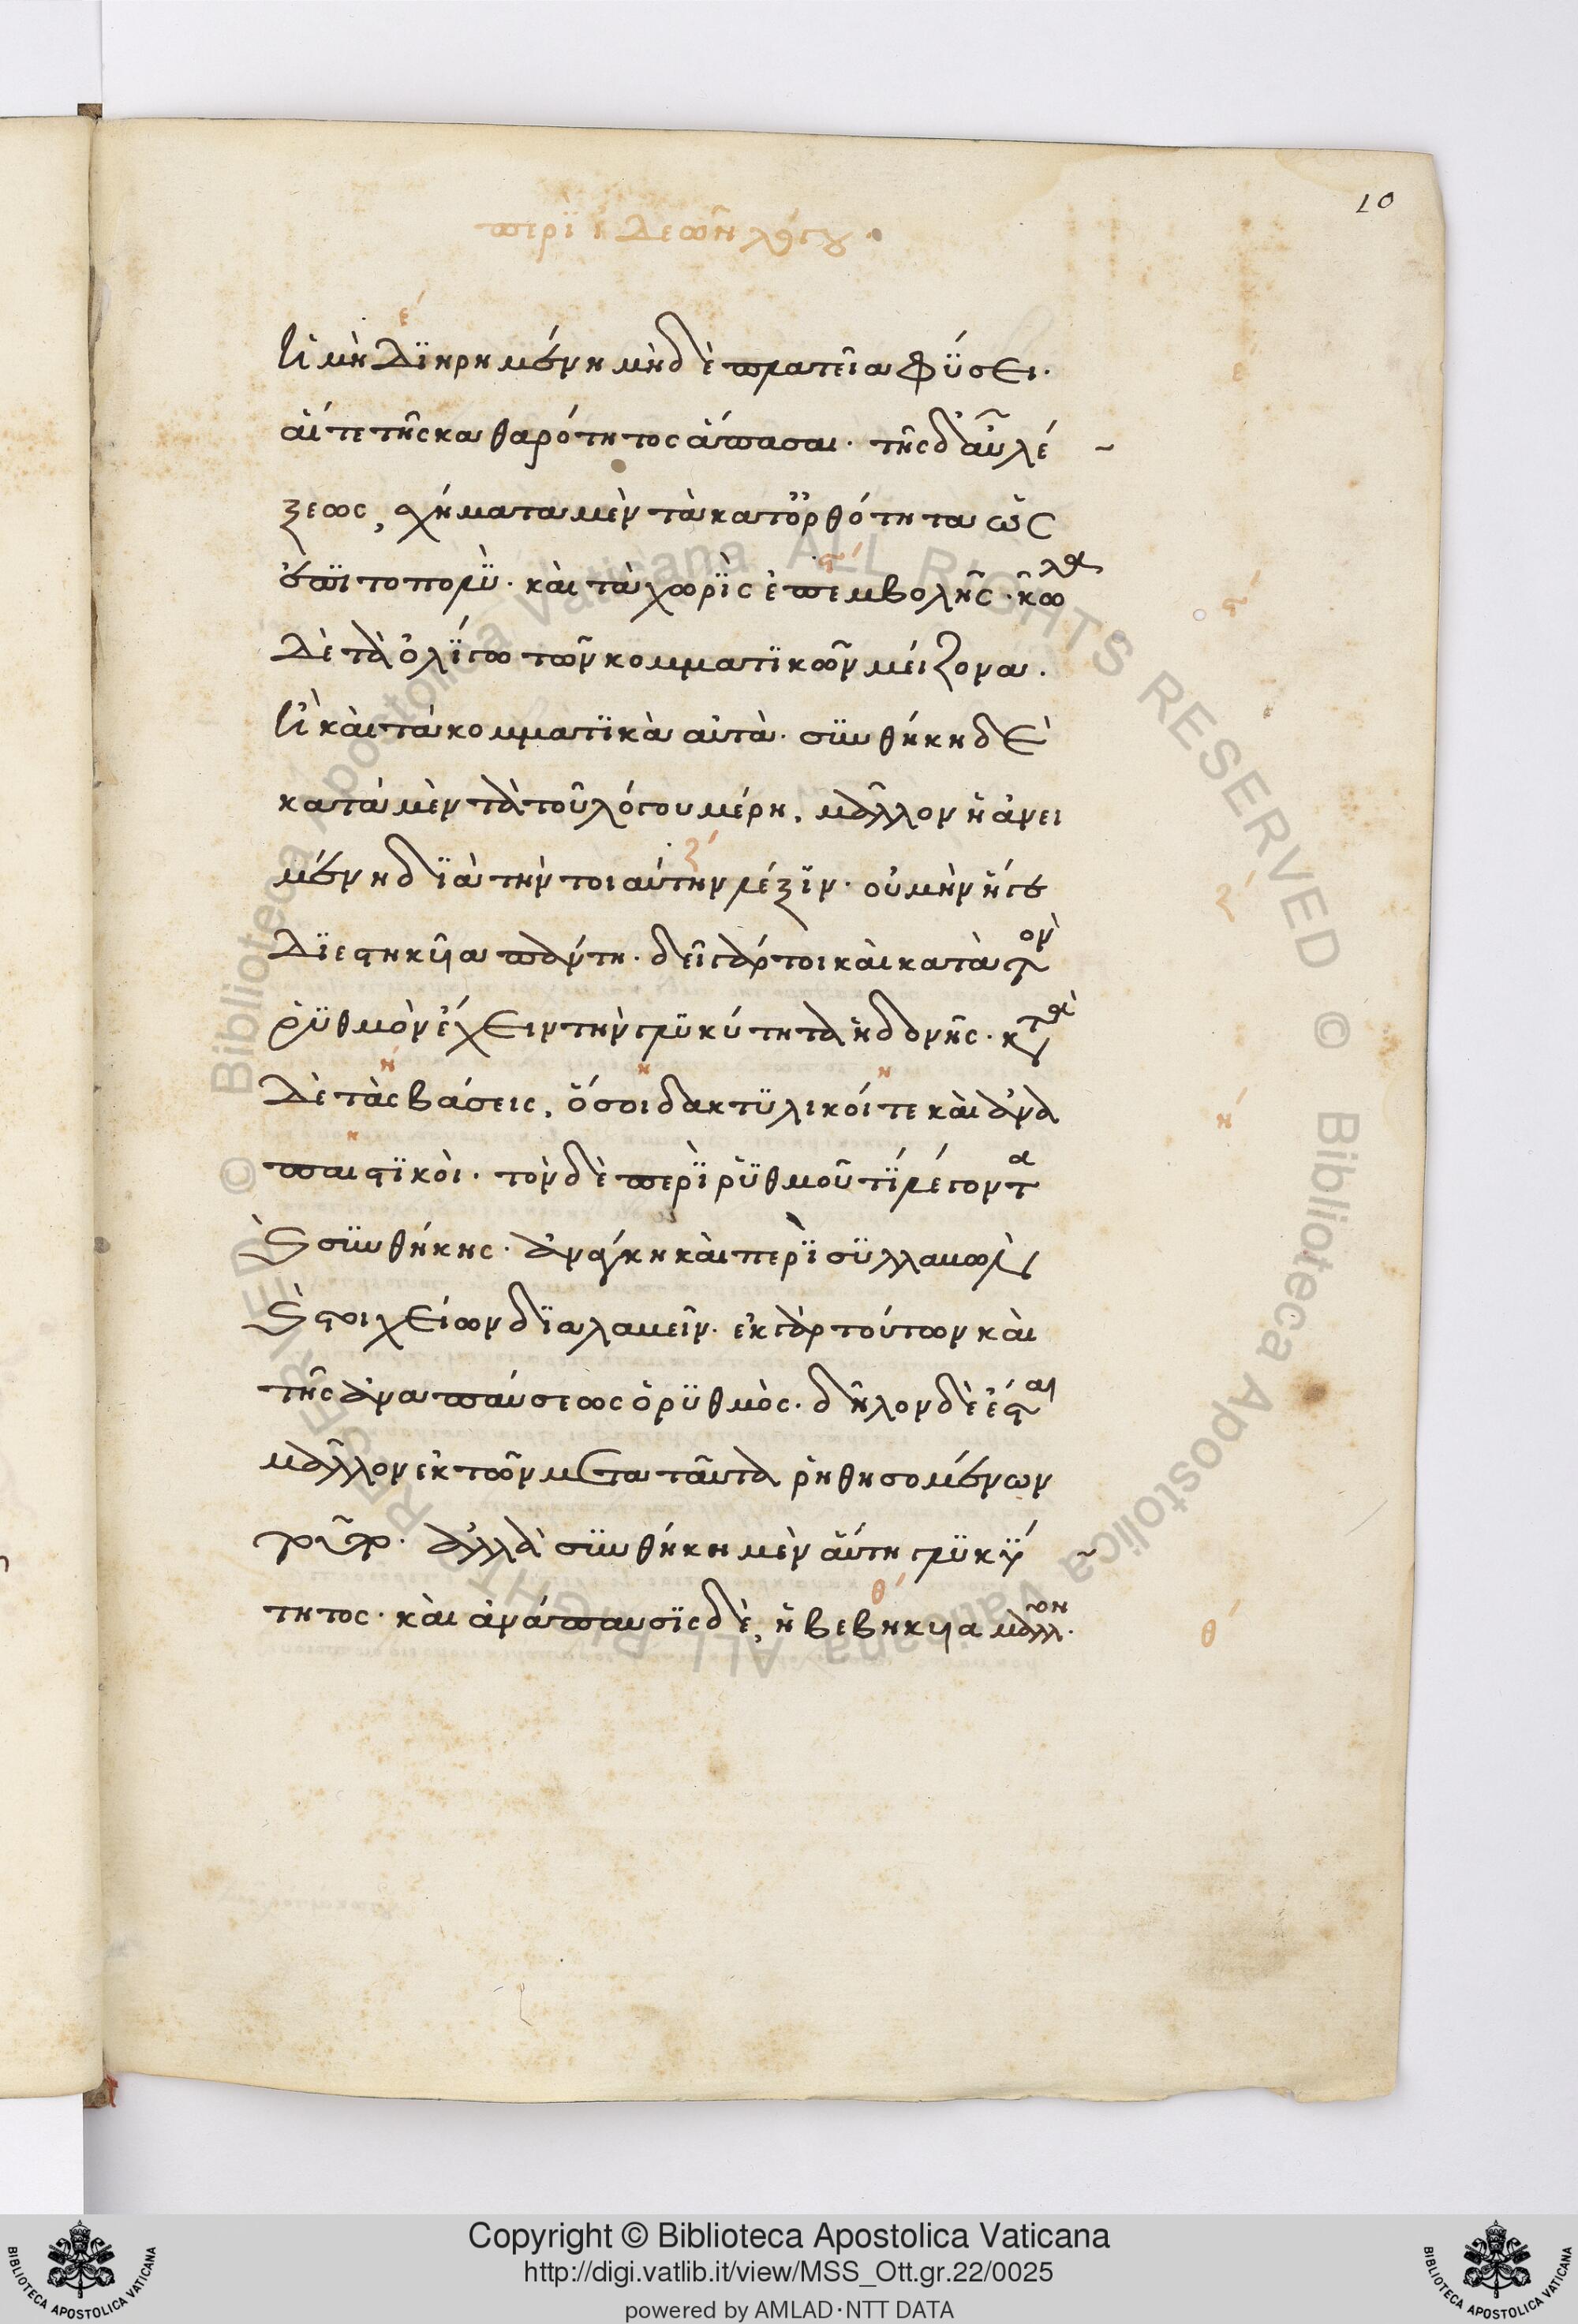 10
περὶ ἰδεῶν λόγου.
εἰ μὴ διῃρημένη μηδὲ πλατεῖα φύσει.
αἵ τε τῆς καθαρότητος ἅπασαι. τῆς δ' αὖ λέ
ξεως, σχήματα μὲν τὰ κατ' ὀρθότητα ὡς
ἐπιτοπολὺ. καὶ τὰ χωρὶς ἐπεμβολῆς. κῶλα
δὲ τὰ ὀλίγω τῶν κομματικῶν μείζονα.
εἰ καὶ τὰ κομματικὰ αὐτὰ. συνθήκη δὲ
κατὰ μὲν τὰ τοῦ λόγου μέρη, μᾶλλον ἡ ἀνει
μένη διὰ τὴν τοιαύτην λέξιν. οὐ μὴν ἥγε
διεστηκυῖα πάντη. δεῖ γάρ τοι καὶ κατὰ τὸν
ῥυθμὸν ἔχειν τὴν γλυκύτητα ἡδονῆς. κατὰ
δὲ τὰς βάσεις, ὅσοι δακτυλικοί τε καὶ ἀνα
παιστικοὶ. τὸν δὲ περὶ ῥυθμοῦ τί λέγοντα
καὶ συνθήκης. ἀνάγκη καὶ περὶ συλλαβῶν
καὶ στοιχείων διαλαβεῖν. ἐκ γὰρ τούτων καὶ
τῆς ἀναπαύσεως ὁ ῥυθμὸς. δῆλον δὲ ἔσται
μᾶλλον ἐκ τῶν μετὰ ταῦτα ῥηθησομένων
τοῦτο. ἀλλὰ συνθήκη μὲν αὕτη γλυκύ
τητος. καὶ ἀνάπαυσις δὲ, ἡ βεβηκυῖα μᾶλλον.
ε΄
ϛ΄
ζ΄
η΄
θ΄
Copyright © Biblioteca Apostolica Vaticana
http://digi.vatlib.it/view/MSS_Ott.gr.22/0025
powered by AMLAD·NTT DATA
BIBLIOTECA APOSTOLICA VATICANA
BIBLIOTECA APOSTOLICA VATICANA
© Biblioteca Apostolica Vaticana ALL RIGHTS RESERVED © Biblioteca Apostolica Vaticana ALL RIGHTS RESERVED